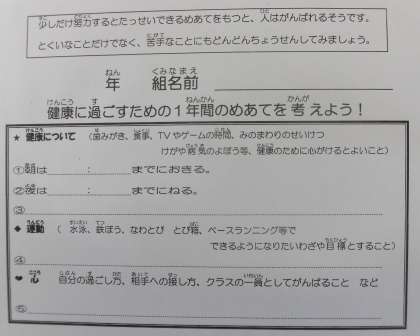 少しだけ努力するとたっせいできるめあてをもつと、人はがんばれるそうです。
とくいなことだけでなく、苦手なことにもどんどんちょうせんしてみましょう。
年 組名前
健康に過ごすための１年間のめあてを考えよう！
★ 健康について （歯みがき、食事、TVやゲームの時間、みのまわりのせいけつ
けがや病気のよぼう等、健康のために心がけるとよいこと）
①朝は ： までにおきる。
②夜は ： までにねる。
③
◆ 運動 （ 水泳、鉄ぼう、なわとび とび箱、ベースランニング等で
できるようになりたいわざや目標とすること）
④
♥ 心 自分の過ごし方、相手への接し方、クラスの一員としてがんばること など
⑤